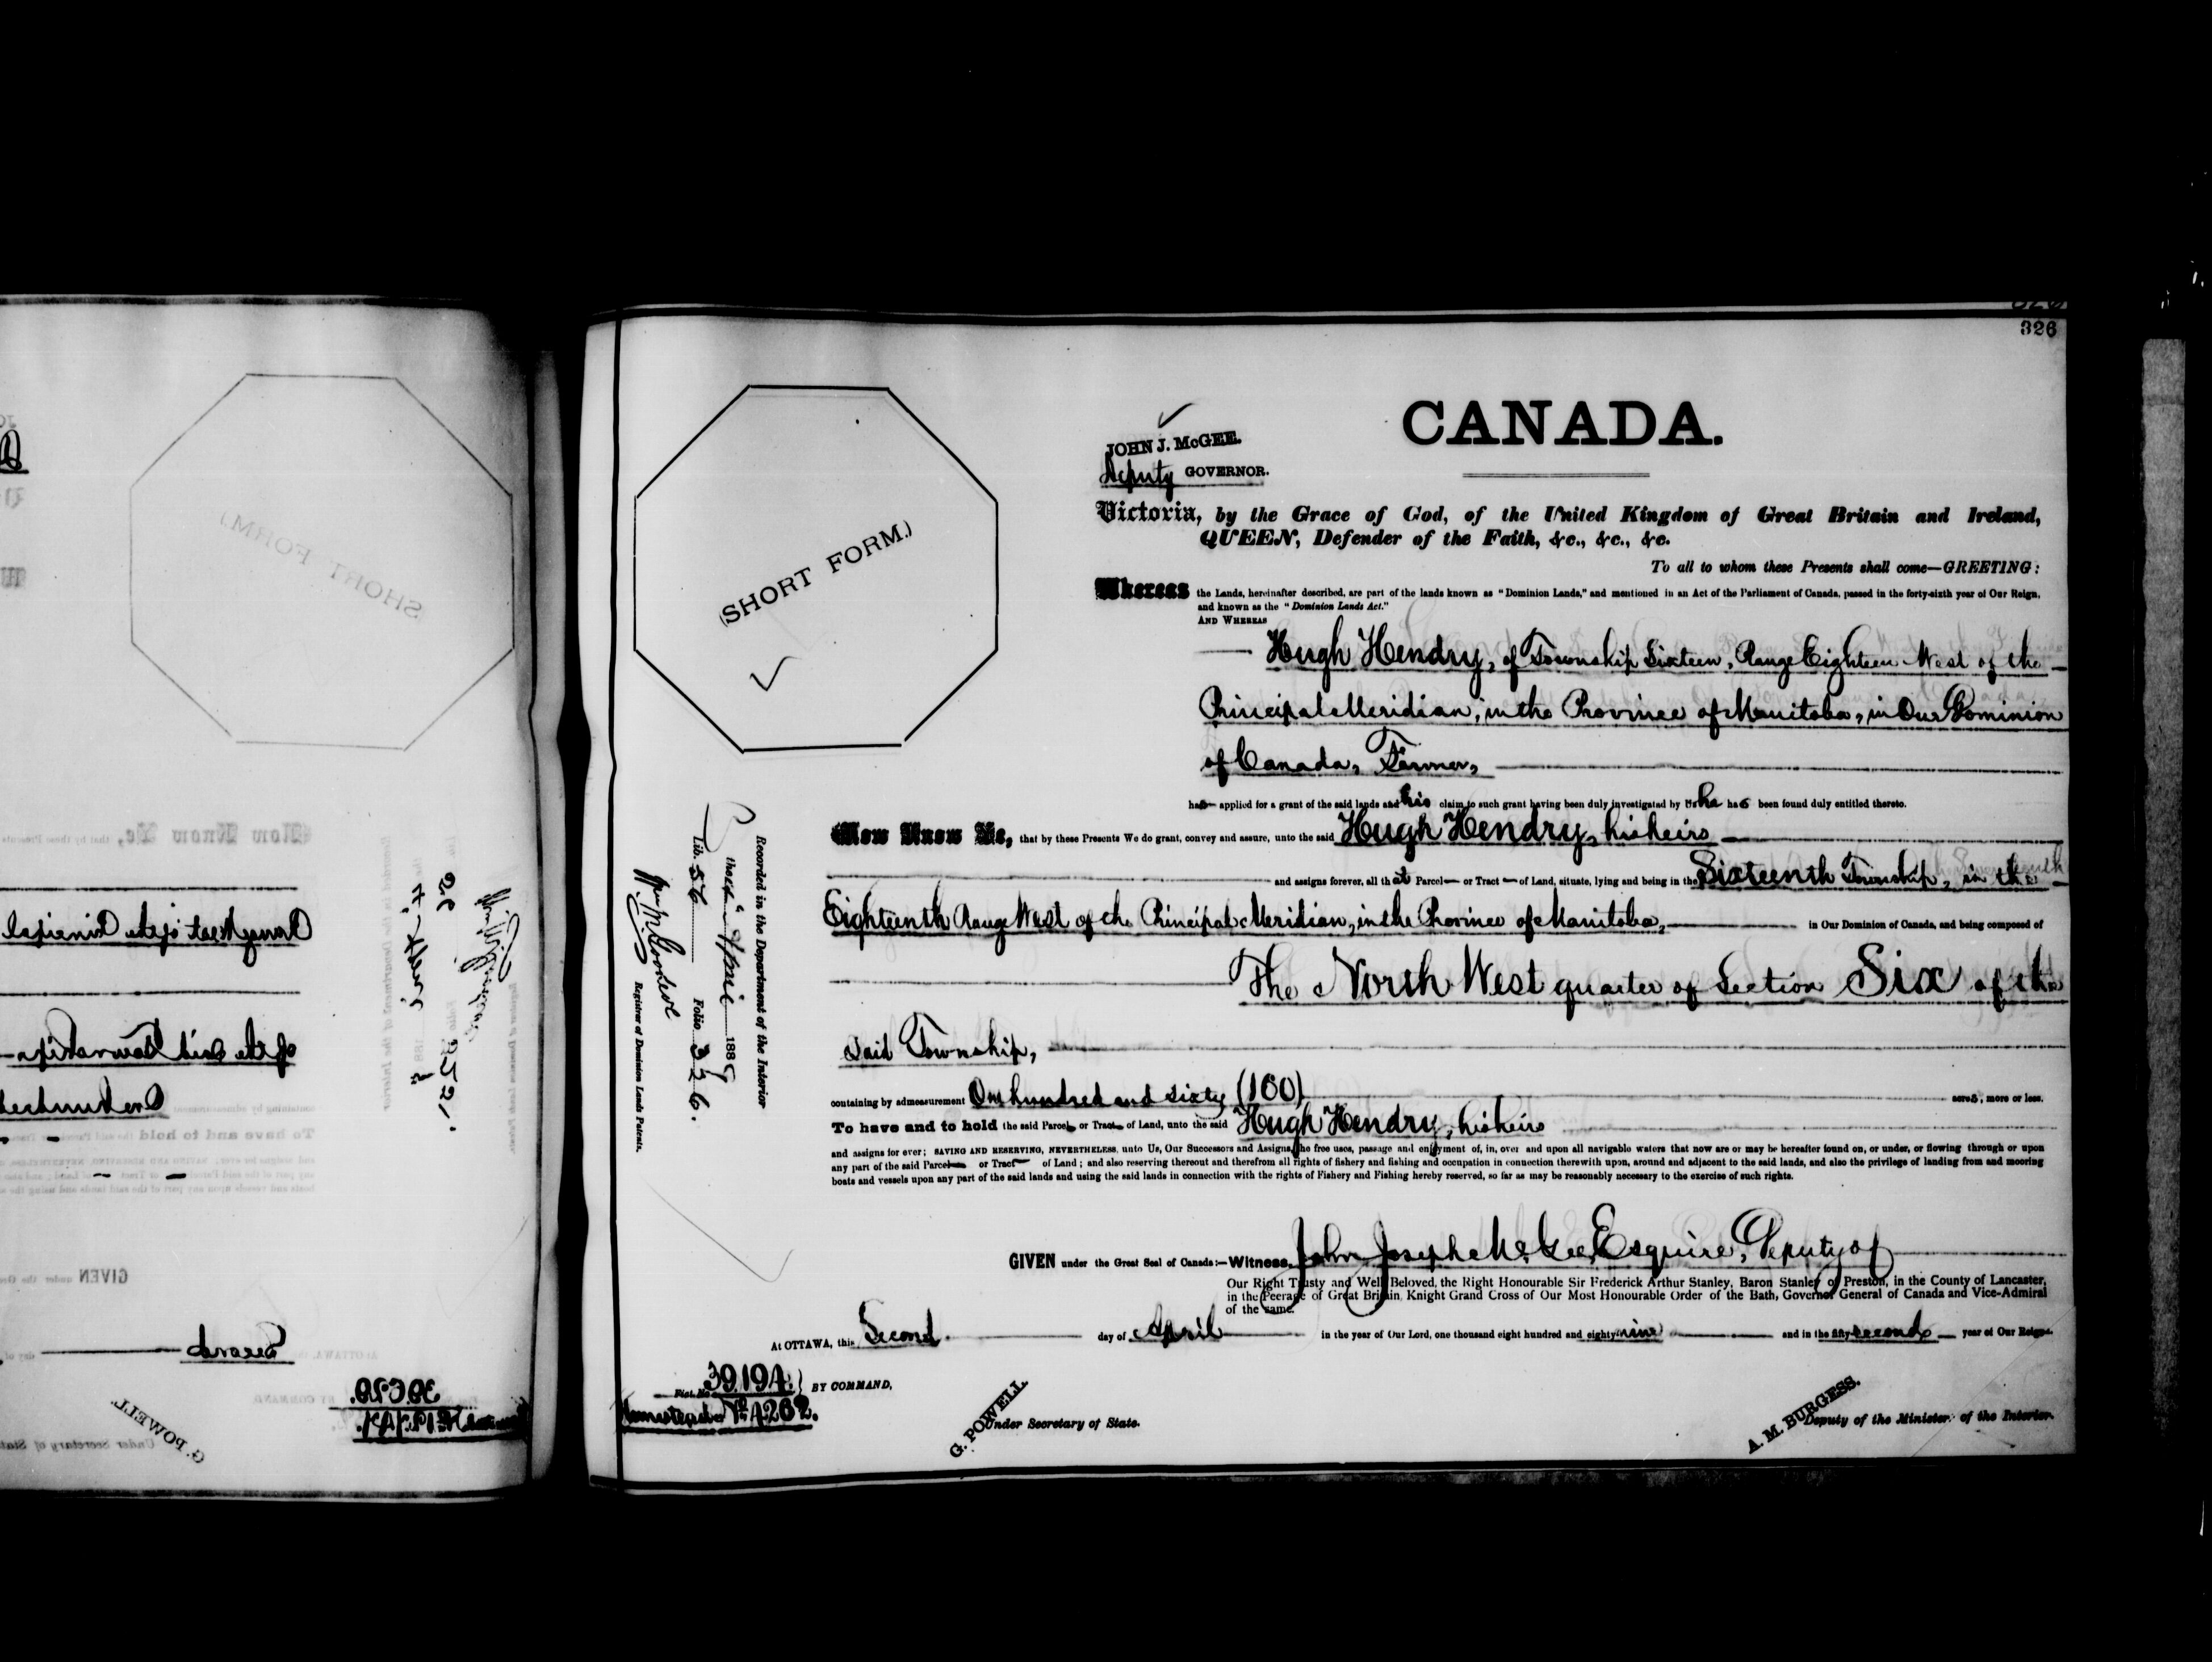 326
CANADA.
JOHN J. McGEE.
Deputy GOVERNOR.
(SHORT FORM.)
Victoria, by the Grace of God, of the United Kingdom of Great Britain and Ireland,
QUEEN, Defender of the Faith, &c., &c., &c.
To all to whom these Presents shall come—GREETING:
Whereas the Lands, hereinafter described, are part of the lands known as "Dominion Lands," and mentioned in an Act of the Parliament of Canada, passed in the forty-sixth year of Our Reign,
and known as the "Dominion Lands Act."
AND WHEREAS
Hugh Hendry, of Township Sixteen, Range Eighteen West of the
Principal Meridian, in the Province of Manitoba, in Our Dominion
of Canada, Farmer,
has applied for a grant of the said lands and his claim to such grant having been duly investigated by Us he has been found duly entitled thereto.
Now Know Ye, that by these Presents We do grant, convey and assure, unto the said Hugh Hendry, his heirs
and assigns forever, all that Parcel or Tract of Land, situate, lying and being in the Sixteenth Township, in the
Eighteenth Range West of the Principal Meridian, in the Province of Manitoba, in Our Dominion of Canada, and being composed of
The North West quarter of Section Six of the
said Township,
containing by admeasurement One hundred and sixty (160) acres, more or less.
To have and to hold the said Parcel or Tract of Land, unto the said Hugh Hendry, his heirs
and assigns for ever; SAVING AND RESERVING, NEVERTHELESS, unto Us, Our Successors and Assigns, the free uses, passage and enjoyment of, in, over and upon all navigable waters that now are or may be hereafter found on, or under, or flowing through or upon
any part of the said Parcel or Tract of Land; and also reserving thereout and therefrom all rights of fishery and fishing and occupation in connection therewith upon, around and adjacent to the said lands, and also the privilege of landing from and mooring
boats and vessels upon any part of the said lands and using the said lands in connection with the rights of Fishery and Fishing hereby reserved, so far as may be reasonably necessary to the exercise of such rights.
GIVEN under the Great Seal of Canada:—Witness, John Joseph McGee, Esquire, Deputy of
Our Right Trusty and Well Beloved, the Right Honourable Sir Frederick Arthur Stanley, Baron Stanley of Preston, in the County of Lancaster,
in the Peerage of Great Britain, Knight Grand Cross of Our Most Honourable Order of the Bath, Governor General of Canada and Vice-Admiral
of the same.
At OTTAWA, this Second day of April in the year of Our Lord, one thousand eight hundred and eighty nine and in the fifty second year of Our Reign.
39194. BY COMMAND,
G. POWELL.
Under Secretary of State.
A. M. BURGESS.
Deputy of the Minister of the Interior.
Recorded in the Department of the Interior
April 1889
Lib. 56 Folio 326.
Registrar of Dominion Lands Patents.